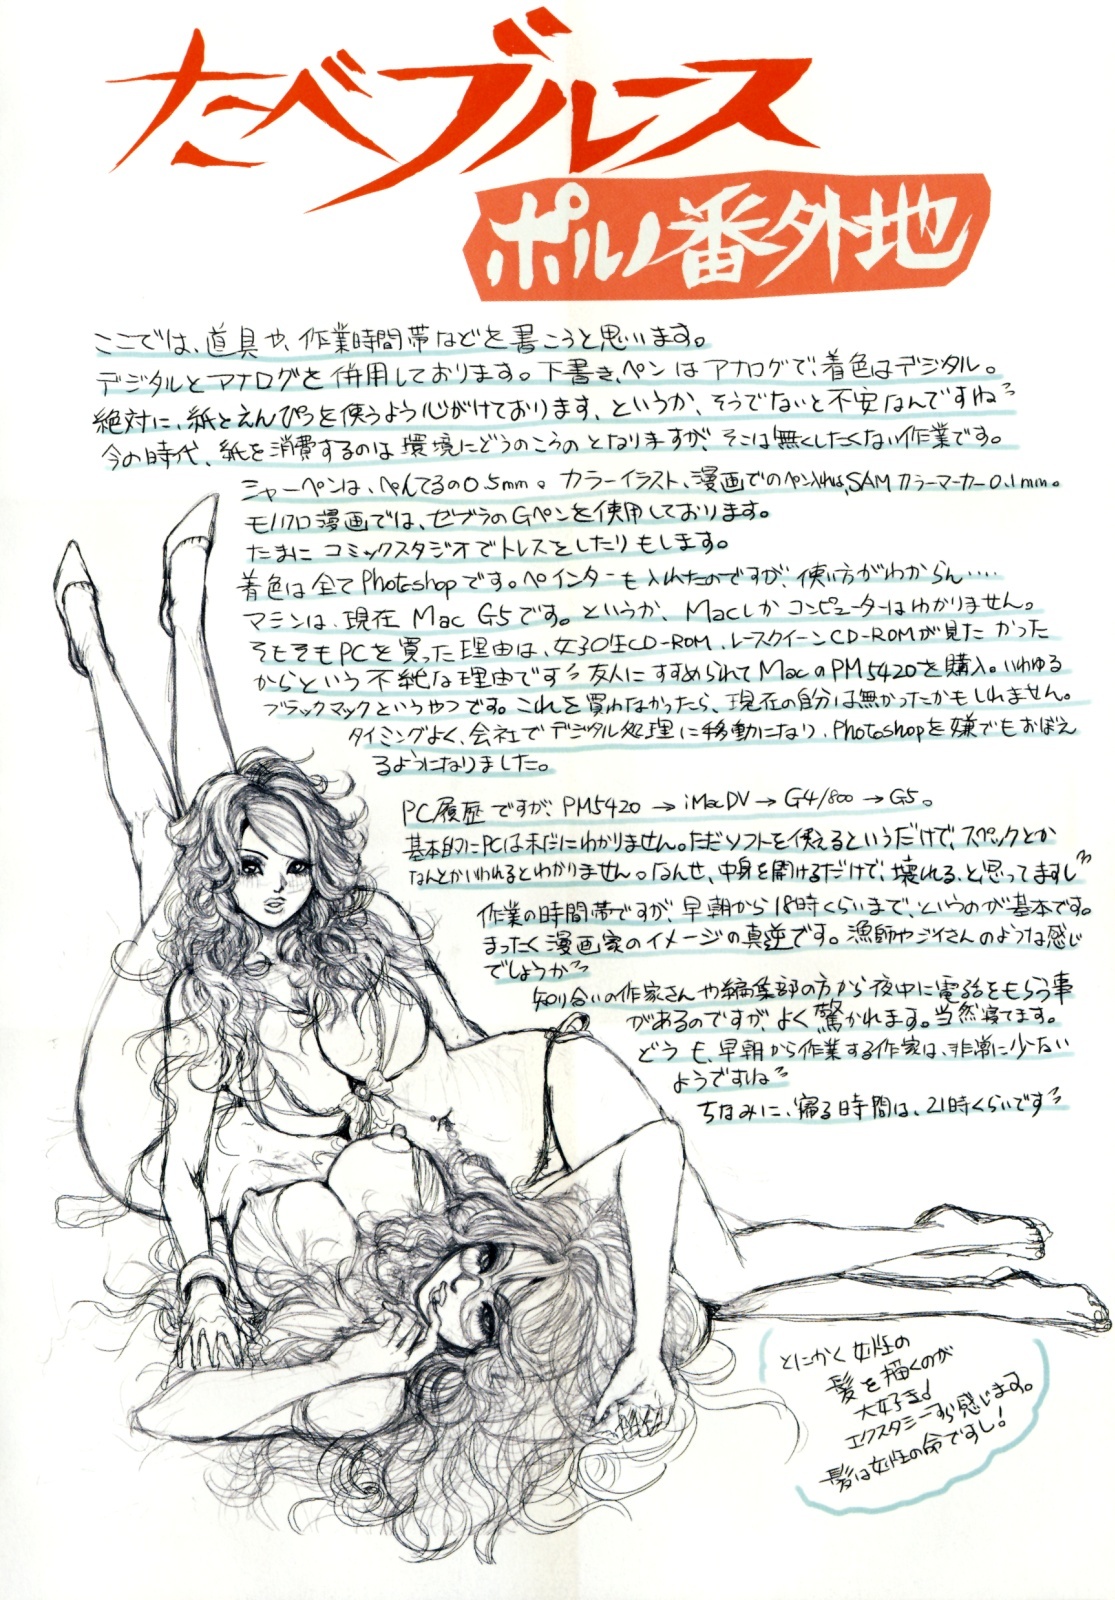 たべブルース
ポルノ番外地
ここでは、道具や、作業時間帯などを書こうと思います。
デジタルとアナログを併用しております。下書き、ペンはアナログで、着色はデジタル。
絶対に、紙とえんぴつを使うよう心がけております、というか、そうでないと不安なんですね
今の時代、紙を消費するのは環境にどうのこうのとなりますが、そこは無くしたくない作業です。
シャーペンは、ぺんてるの0.5mm。カラーイラスト、漫画でのペン入れは、SAMカラーマーカー0.1mm。
モノクロ漫画では、ゼブラのGペンを使用しております。
たまにコミックスタジオでトレスをしたりもします。
着色は全てPhotoshopです。ペインターも入れたのですが、使い方がわからん....
マシンは、現在Mac G5です。というか、Macしかコンピューターはわかりません。
そもそもPCを買った理由は、女子〇生CD-ROM、レースクイーンCD-ROMが見たかった
からという不純な理由です 友人にすすめられてMacのPM5420を購入。いわゆる
ブラックマックというやつです。これを買わなかったら、現在の自分は無かったかもしれません。
タイミングよく、会社でデジタル処理に移動になり、Photoshopを嫌でもおぼえ
るようになりました。
PC履歴ですが、PM5420→iMacDV→G4/800→G5。
基本的にPCは未だにわかりません。ただソフトを使えるというだけで、スペックとか
なんとかいわれるとわかりません。なんせ、中身を開けるだけで、壊れる、と思ってますし
作業の時間帯ですが、早朝から18時くらいまで、というのが基本です。
まったく漫画家のイメージの真逆です。漁師やジイさんのような感じ
でしょうか
知り合いの作家さんや編集部の方から夜中に電話をもらう事
があるのですが、よく驚かれます。当然寝てます。
どうも、早朝から作業する作家は、非常に少ない
ようですね
ちなみに、寝る時間は、21時くらいです
とにかく女性の
髪を描くのが
大好き!
エクスタシーすら感じます。
髪は女性の命ですし!